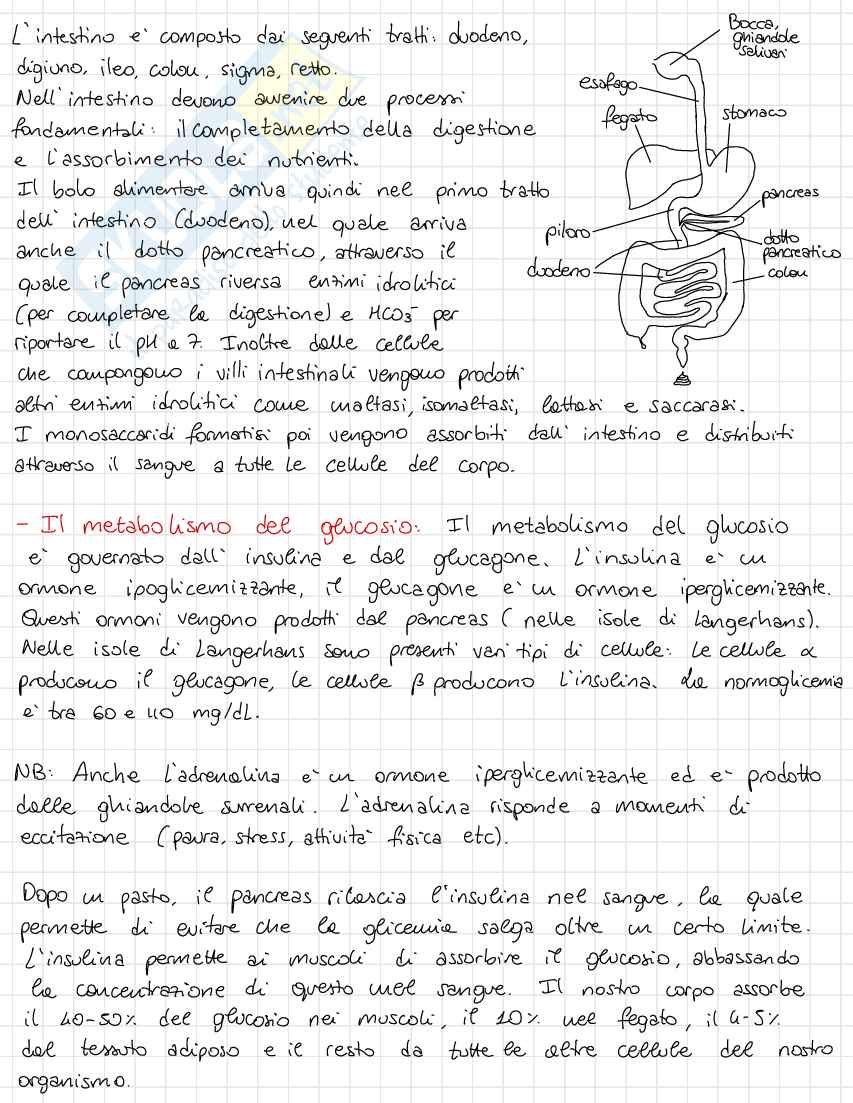 L'intestino e' composto dai seguenti tratti: duodeno,
digiuno, ileo, colon, sigma, retto.
Nell'intestino devono avvenire due processi
fondamentali: il completamento della digestione
e l'assorbimento dei nutrienti.
Il bolo alimentare arriva quindi nel primo tratto
dell'intestino (duodeno), nel quale arriva
anche il dotto pancreatico, attraverso il
quale il pancreas riversa enzimi idrolitici
(per completare la digestione) e HCO3⁻ per
riportare il pH a 7. Inoltre dalle cellule
che compongono i villi intestinali vengono prodotti
altri enzimi idrolitici come maltasi, isomaltasi, lattasi e saccarasi.
I monosaccaridi formatisi poi vengono assorbiti dall'intestino e distribuiti
attraverso il sangue a tutte le cellule del corpo.
Bocca,
ghiandole
salivari
esofago
fegato
stomaco
pancreas
piloro
dotto
pancreatico
duodeno
colon
- Il metabolismo del glucosio: Il metabolismo del glucosio
e' governato dall'insulina e dal glucagone. L'insulina e' un
ormone ipoglicemizzante, il glucagone e' un ormone iperglicemizzante.
Questi ormoni vengono prodotti dal pancreas (nelle isole di Langerhans).
Nelle isole di Langerhans sono presenti vari tipi di cellule: le cellule α
producono il glucagone, le cellule β producono l'insulina. La normoglicemia
e' tra 60 e 110 mg/dL.
NB: Anche l'adrenalina e' un ormone iperglicemizzante ed e' prodotto
dalle ghiandole surrenali. L'adrenalina risponde a momenti di
eccitazione (paura, stress, attivita' fisica etc).
Dopo un pasto, il pancreas rilascia l'insulina nel sangue, la quale
permette di evitare che la glicemia salga oltre un certo limite.
L'insulina permette ai muscoli di assorbire il glucosio, abbassando
la concentrazione di questo nel sangue. Il nostro corpo assorbe
il 40-50% del glucosio nei muscoli, il 10% nel fegato, il 4-5%
dal tessuto adiposo e il resto da tutte le altre cellule del nostro
organismo.